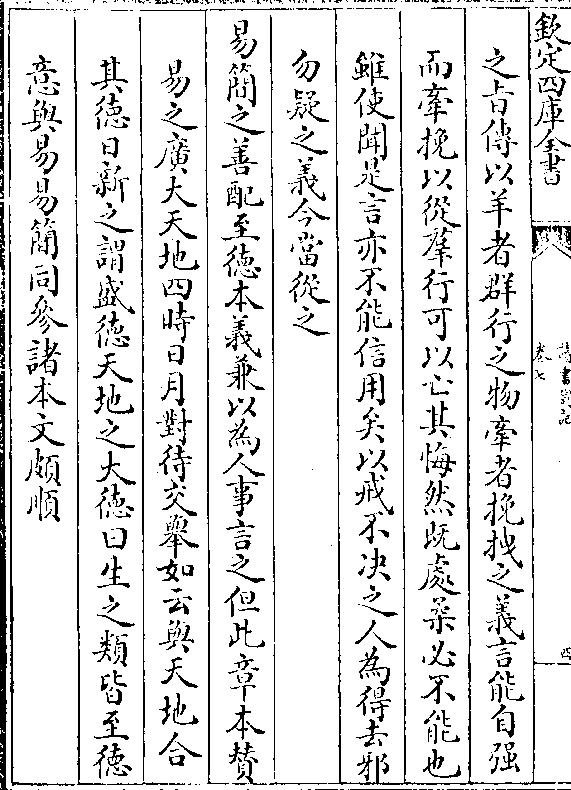 欽定四庫全書
讀書劄記
卷七
四
之旨傳以羊者群行之物牽者挽拽之義言能自强
而牽挽以從羣行可以亡其悔然既處柔必不能也
雖使聞是言亦不能信用矣以戒不决之人為得去邪
勿疑之義今當從之
易簡之善配至徳本義兼以為人事言之但此章本賛
易之廣大天地四時日月對待交舉如云與天地合
其徳日新之謂盛徳天地之大徳曰生之類皆至徳
意與易易簡同參諸本文頗順